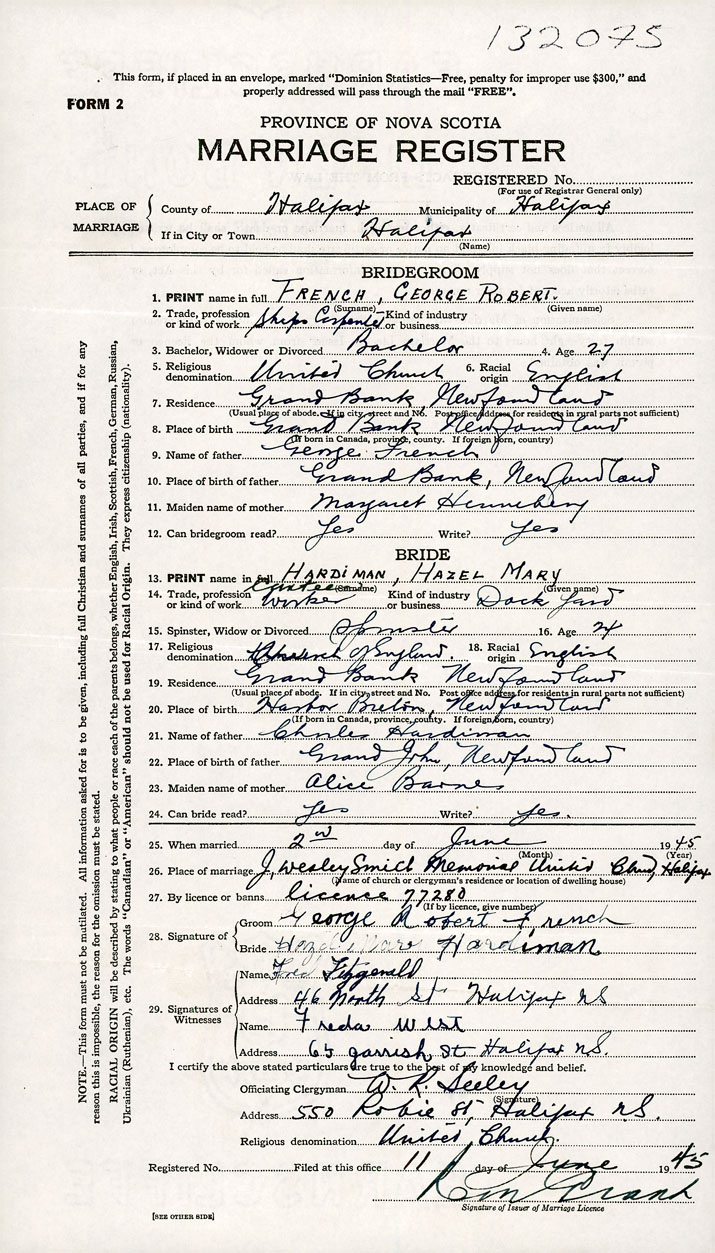 132075
. This form, if placed in an envelope, marked "Dominion Statistics—Free, penalty for improper use $300," and
properly addressed will pass through the mail "FREE".
FORM 2
PROVINCE OF NOVA SCOTIA
MARRIAGE REGISTER
REGISTERED No.
(For use of Registrar General only)
PLACE OF MARRIAGE
County of Halifax Municipality of Halifax
If in City or Town Halifax
(Name)
BRIDEGROOM
1. PRINT name in full FRENCH, GEORGE ROBERT.
(Surname) (Given name)
2. Trade, profession or kind of work Ships Carpenter Kind of industry or business
3. Bachelor, Widower or Divorced Bachelor 4. Age 27
5. Religious denomination United Church 6. Racial origin English
7. Residence Grand Bank Newfoundland
(Usual place of abode. If in city, street and No. Post office address for residents in rural parts not sufficient)
8. Place of birth Grand Bank Newfoundland
(If born in Canada, province, county. If foreign born, country)
9. Name of father George French
10. Place of birth of father Grand Bank, Newfoundland
11. Maiden name of mother Margaret Hennebery
12. Can bridegroom read? Yes Write? Yes
BRIDE
13. PRINT name in full HARDIMAN, HAZEL MARY
(Surname) (Given name)
14. Trade, profession or kind of work Worker Kind of industry or business Dock Yard
15. Spinster, Widow or Divorced Spinster 16. Age 24
17. Religious denomination Church of England. 18. Racial origin English
19. Residence Grand Bank Newfoundland
(Usual place of abode. If in city, street and No. Post office address for residents in rural parts not sufficient)
20. Place of birth Harbor Breton, Newfoundland
(If born in Canada, province, county. If foreign born, country)
21. Name of father Charles Hardiman
22. Place of birth of father Grand John, Newfoundland
23. Maiden name of mother Alice Barnes
24. Can bride read? Yes Write? Yes.
25. When married 2nd day of June 1945
(Month) (Year)
26. Place of marriage J. Wesley Smith Memorial United Chu, Halifax
(Name of church or clergyman's residence or location of dwelling house)
27. By licence or banns licence 77280
(If by licence, give number)
28. Signature of
Groom George Robert French
Bride Hazel Mary Hardiman
29. Signatures of Witnesses
Name Fred Fitzgerald
Address 46 North St Halifax NS
Name Freda West
Address 65 Garrish St Halifax N.S.
I certify the above stated particulars are true to the best of my knowledge and belief.
Officiating Clergyman W. R. Seeley
(Signature)
Address 550 Robie St, Halifax N.S.
Religious denomination United Church.
Registered No. Filed at this office 11 day of June 1945
Signature of Issuer of Marriage Licence
[SEE OTHER SIDE]
NOTE.—This form must not be mutilated. All information asked for is to be given, including full Christian and surnames of all parties, and if for any
reason this is impossible, the reason for the omission must be stated.
RACIAL ORIGIN will be described by stating to what people or race each of the parents belongs, whether English, Irish, Scottish, French, German, Russian,
Ukrainian (Ruthenian), etc. The words "Canadian" or "American" should not be used for Racial Origin. They express citizenship (nationality).